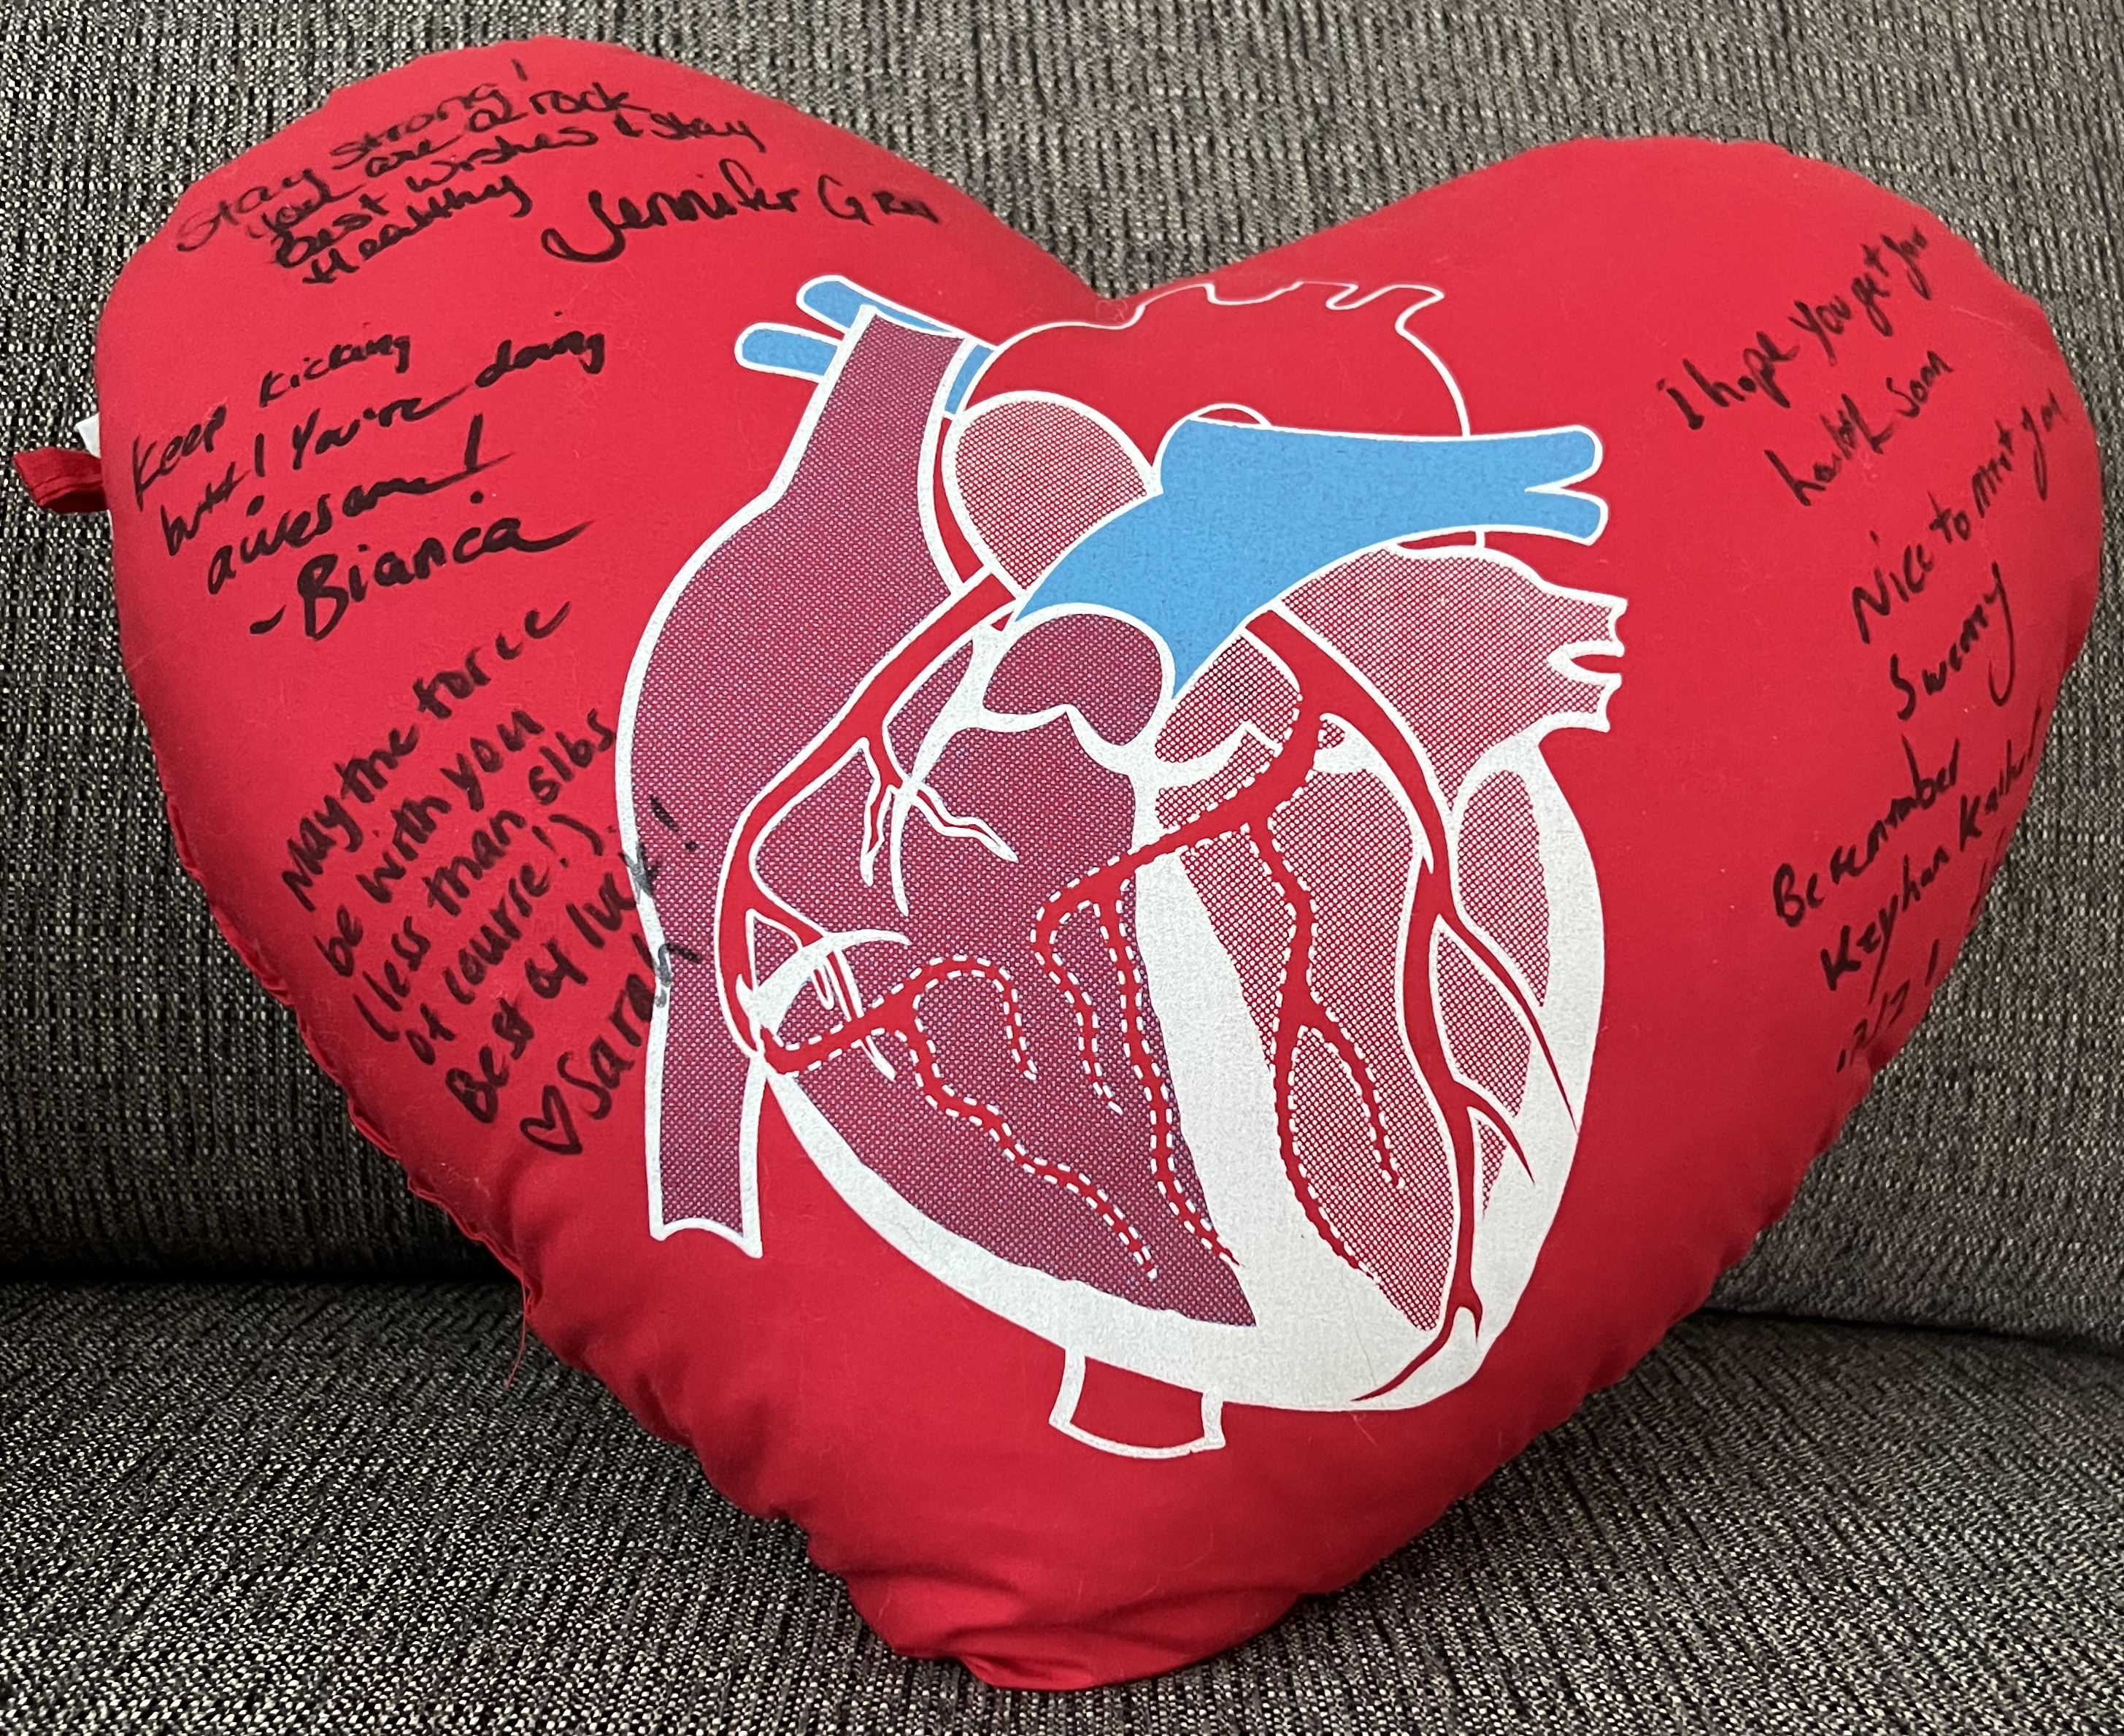 Stay strong!
You are a rock
Best wishes & stay
Healthy
Jennifer G RN
Keep kicking
butt! You're doing
awesome!
- Bianca
May the force
be with you
(less than 5lbs
of course!)
Best of luck!
♡ Sarah
I hope you get you
health soon
Nice to meet you
Sweeny
Be remember
Keyhan
12/21